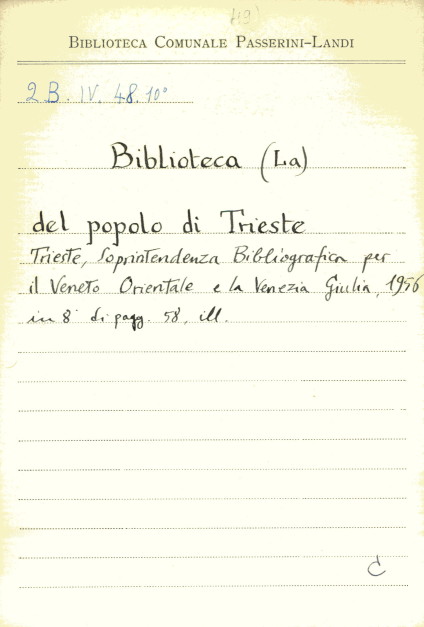 BIBLIOTECA COMUNALE PASSERINI-LANDI
2 B. IV. 48. 10°
Biblioteca (La)
del popolo di Trieste
Trieste, Soprintendenza Bibliografica per
il Veneto Orientale e la Venezia Giulia, 1956
in 8° di pagg. 58, ill.
C